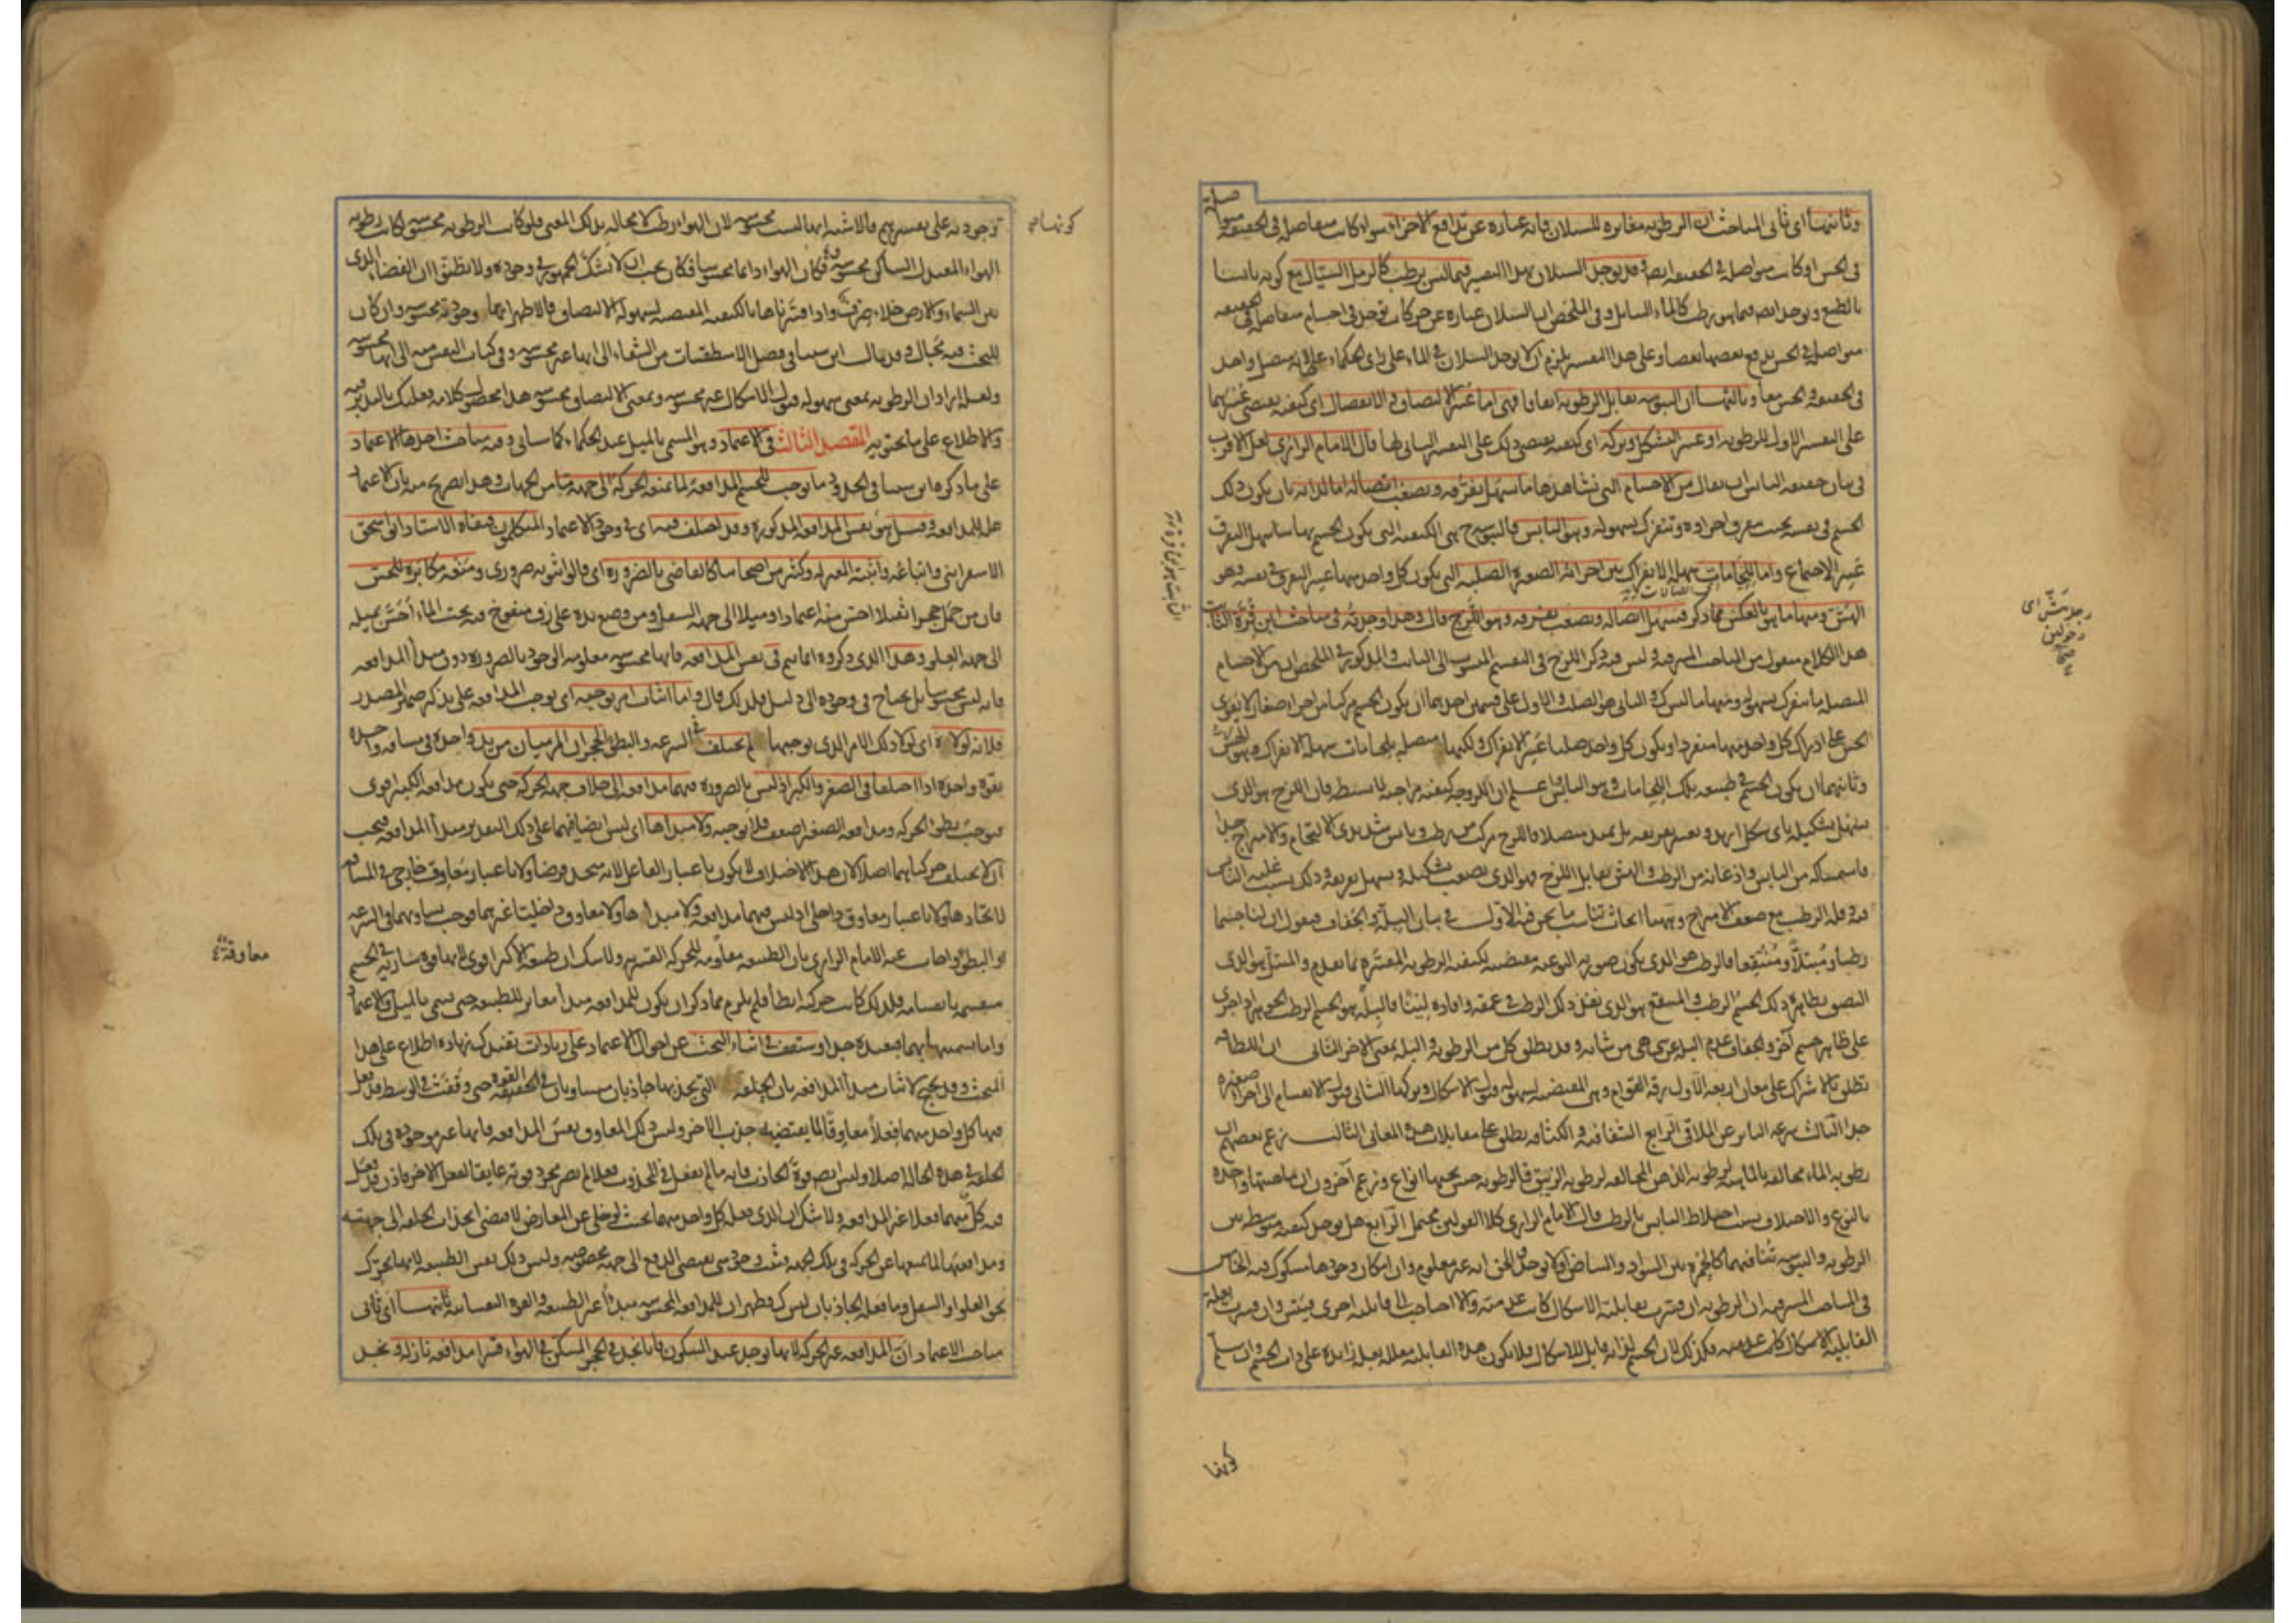 وثانيها أي ثاني المباحث أن الرطوبة مغايرة للسيلان فإنه عبارة عن تدافع الأجزاء سواء كانت متفاصلة في الحقيقة
في الحس أو كانت متواصلة في الحقيقة أيضا وقد يوجد السيلان بهذا التفسير فيما ليس برطب كالرمل السيّال مع كونه يابسا
بالطبع ويوجد أيضا فيما هو رطب كالماء السايل وفي الملخص أن السيلان عبارة عن حركات توجد في أجسام متفاصلة في الحقيقة
متواصلة في الحس يدفع بعضها بعضا وعلى هذا التفسير يلزم أن لا يوجد السيلان في الماء على رأي الحكماء لأنه متصل واحد
في الحقيقة والحس معا وثالثها أن اليبوسة تقابل الرطوبة اتفاقا فهي إما عسر الالتصاق والانفصال أي كيفية تقتضي عسرهما
على التفسير الأول للرطوبة أو عسر التشكل وتركه أي كيفية تقتضي ذلك على التفسير الثاني لها قال الإمام الرازي لعل الأقرب
في بيان حقيقة اليابس أن يقال من الأجسام التي نشاهدها ما يسهل تفرقه ويصعب اتصاله إما لذاته بأن يكون ذلك
الجسم في نفسه بحيث يتفرق أجزاؤه وتنفرك بسهولة وهو اليابس فاليبوسة هي الكيفية التي يكون الجسم بها سهل التفرق
عسر الاجتماع وإما للحامات سهلة الانفراك بين أجزائه الصغيرة الصلبة التي يكون كل واحد منها عسر التفرق في نفسه وهو
الهش ومنها ما هو بالعكس مما ذكر فيسهل اتصاله ويصعب تفريقه وهو اللزج قال وهذا وجدته في مباحث ابن قرة الثابت
هذا الكلام منقول من المباحث المشرقية وليس فيه ذكر اللزج في التقسيم المنسوب إلى الثابت والمذكور في الملخص أن من الأجسام
المتصلة ما ينفرك بسهولة ومنها ما ليس كذلك والثاني هو الصلب والأول على قسمين أحدهما أن يكون الجسم مركبا من أجزاء صغار لا يقوى
الحس على إدراك كل واحد منها منفردا ويكون كل واحد صلبا عسر الانفراك ولكنها متصلة بلحامات سهلة الانفراك وهو الهش
وثانيهما أن يكون الجسم في طبيعته تلك اللحامات وهو اليابس ثم اعلم أن اللزوجة كيفية مزاجية لا بسيطة فإن اللزج هو الذي
يسهل تشكيله بأي شكل أريد ويعسر تفريقه بل يمتد متصلا فاللزج مركب من رطب ويابس شديدي الالتحام والامتزاج جدا
فاستمساكه من اليابس وإذعانه من الرطب والهش يقابل اللزج فهو الذي يصعب تشكيله ويسهل تفريقه وذلك بسبب غلبة اليابس
فيه وقلة الرطب مع ضعف الامتزاج وههنا أبحاث تناسب ما نحن فيه الأول في بيان البلة والجفاف فنقول إن لنا جسما
رطبا ومبتلا ومنتقعا فالرطب هو الذي يكون صورته النوعية مقتضية لكيفية الرطوبة المفسرة بما تقدم والمبتل هو الذي
التصق بظاهره ذلك الجسم الرطب والمنتقع هو الذي نفذ ذلك الرطب في عمقه وأفاده لينا فالبلة هو الجسم الرطب الجوهر إذا جرى
على ظاهر جسم آخر والجفاف عدم البلة عن شيء هي من شأنه وقد يطلق كل من الرطوبة والبلة بمعنى الآخر الثاني أن اللطافة
تطلق بالاشتراك على معان أربعة الأول رقة القوام وهي المقتضية لسهولة قبول الأشكال وتركها الثاني قبول الانقسام إلى أجزاء صغيرة
جدا الثالث سرعة التأثر عن الملاقي الرابع الشفافية والكثافة تطلق على مقابلات هذه المعاني الثالث زعم بعضهم أن
رطوبة الماء مخالفة بالماهية لرطوبة الدهن المخالفة لرطوبة الزيبق فالرطوبة جنس تحتها أنواع وزعم آخرون أن ماهيتها واحدة
بالنوع والاختلاف بسبب اختلاط اليابس بالرطب قال الإمام الرازي كلا القولين محتمل الرابع هل يوجد كيفية متوسطة بين
الرطوبة واليبوسة تنافيهما كالحمرة بين السواد والبياض أو لا يوجد الحق أنه غير معلوم وأن إمكان وجودها مشكوك فيه الخامس
في المباحث المشرقية أن الرطوبة إن فسرت بقابلية الأشكال كانت عدمية وإلا احتاجت إلى قابلية أخرى فيتسلسل وإن فسرت بعلة
القابلية للأشكال كانت عدمية فكذلك لأن الجسم لذاته قابل للأشكال فلا يكون هذه القابلية معللة بعلة زايدة على ذات الجسم وإن سلم
كونها
وجوديه على تفسيرهم فالأشبه أنها ليست محسوسة لأن الهواء رطب لا محالة بذلك المعنى فلو كانت الرطوبة محسوسة لكانت رطوبة
الهواء المعتدل الساكن محسوسة فكان الهواء دائما محسوسا فكان يجب أن لا يشك الجمهور في وجوده ولا يظنوا أن الفضاء الذي
بين السماء والأرض خلاء صرف وإذا فسرناها بالكيفية المقتضية لسهولة الالتصاق فالأظهر أنها وجودية محسوسة وإن كان
للبحث فيه مجال وقد مال ابن سينا في فصل الاسطقسات من الشفاء إلى أنها غير محسوسة وفي كتاب النفس منه إلى أنها محسوسة
ولعله أراد أن الرطوبة بمعنى سهولة قبول الأشكال غير محسوسة وبمعنى الالتصاق محسوسة هذا محصول كلامه فعليك بالتدبر فيه
والاطلاع على ما يحتويه المقصد الثالث في الاعتماد وهو المسمى بالميل عند الحكماء كما سيأتي وفيه مباحث أحدها الاعتماد
على ما ذكره ابن سينا في الحدود ما يوجب للجسم المدافعة لما يمنعه الحركة إلى جهة ما من الجهات وهذا تصريح منه بأن الاعتماد
علة للمدافعة وقيل هو نفس المدافعة المذكورة وقد اختلف فيه أي في وجود الاعتماد المتكلمون فنفاه الأستاذ أبو إسحق
الاسفرايني وأتباعه وأثبته المعتزلة وكثير من أصحابنا كالقاضي بالضرورة أي قالوا ثبوته ضروري ومنعه مكابرة للحس
فإن من حمل حجرا ثقيلا أحس منه اعتمادا وميلا إلى جهة السفل ومن وضع يده على زق منفوخ فيه تحت الماء أحس بميله
إلى جهة العلو وهذا الذي ذكروه إنما يتم في نفس المدافعة فإنها محسوسة معلومة الوجود بالضرورة دون مبدأ المدافعة
فإنه ليس محسوسا بل يحتاج في وجوده إلى دليل فلذلك قال وأما إثبات أمر يوجبه أي يوجب المدافعة على تذكير ضمير المصدر
فلأنه لولاه أي لولا ذلك الأمر الذي يوجبها لم يختلف في السرعة والبطؤ الحجران المرميان من يد واحدة في مسافة واحدة
بقوة واحدة إذا اختلفا في الصغر والكبر إذ ليس بالضرورة فيهما مدافعة إلى خلاف جهة الحركة حتى يكون مدافعة الكبير أقوى
فيوجب بطؤ الحركة ومدافعة الصغير أضعف فلا يوجبه ولا مبدأها أي ليس أيضا فيهما على ذلك التقدير مبدأ المدافعة فيجب
أن لا يختلف حركتاهما أصلا لأن هذا الاختلاف لا يكون باعتبار الفاعل لأنه متحد فرضا ولا باعتبار معاوق خارجي في المسافة
لاتحادها ولا باعتبار معاوق داخلي إذ ليس فيهما مدافعة ولا مبدأها ولا معاوق داخليا غيرهما فوجب تساويهما في السرعة
والبطؤ وأجاب عنه الإمام الرازي بأن الطبيعة مقاومة للحركة القسرية ولا شك أن طبيعة الأكبر أقوى لأنها قوة سارية في الجسم
منقسمة بانقسامه فلذلك كانت حركته أبطأ فلم يلزم مما ذكر أن يكون للمدافعة مبدأ مغاير للطبيعة حتى يسمى بالميل والاعتماد
وأما تسميتها بهما فبعيدة جدا وستقف في أثناء البحث عن أحوال الاعتماد على زيادات تفيدك زيادة اطلاع على هذا
المبحث وقد يحتج لإثبات مبدأ المدافعة بأن الحلقة التي يجذبها جاذبان متساويان في القوة حتى وقفت في الوسط قد فعل
فيها كل واحد منهما فعلا معاوقا لما يقتضيه جذب الآخر وليس ذلك المعاوق نفس المدافعة فإنها غير موجودة في تلك
الحلقة في هذه الحالة أصلا وليس أيضا قوة الجاذب فإنه ما لم يفعل في المجذوب فعلا لم يصر مجرد قوته عايقا لفعل الآخر فإذن قد فعل
فيه كل منهما فعلا غير المدافعة ولا شك أن الذي فعله كل واحد منهما بحيث لو خلي عن المعارض لاقتضى انجذاب الحلقة إلى جهته
ومدافعتها لما يمنعها عن الحركة في تلك الجهة فثبت وجود شيء يقتضي الدفع إلى جهة مخصوصة وليس ذلك نفس الطبيعة لأنها تحرك
نحو العلو أو السفل وما فعله الجاذبان ليس كذلك فظهر أن للمدافعة المحسوسة مبدأ غير الطبيعة والقوة النفسانية ثانيها أي ثاني
مباحث الاعتماد أن المدافعة غير الحركة لأنها توجد عند السكون فإنا نجد في الحجر المسكن في الهواء قسرا مدافعة نازلة ونجد
كونها
معاوقة